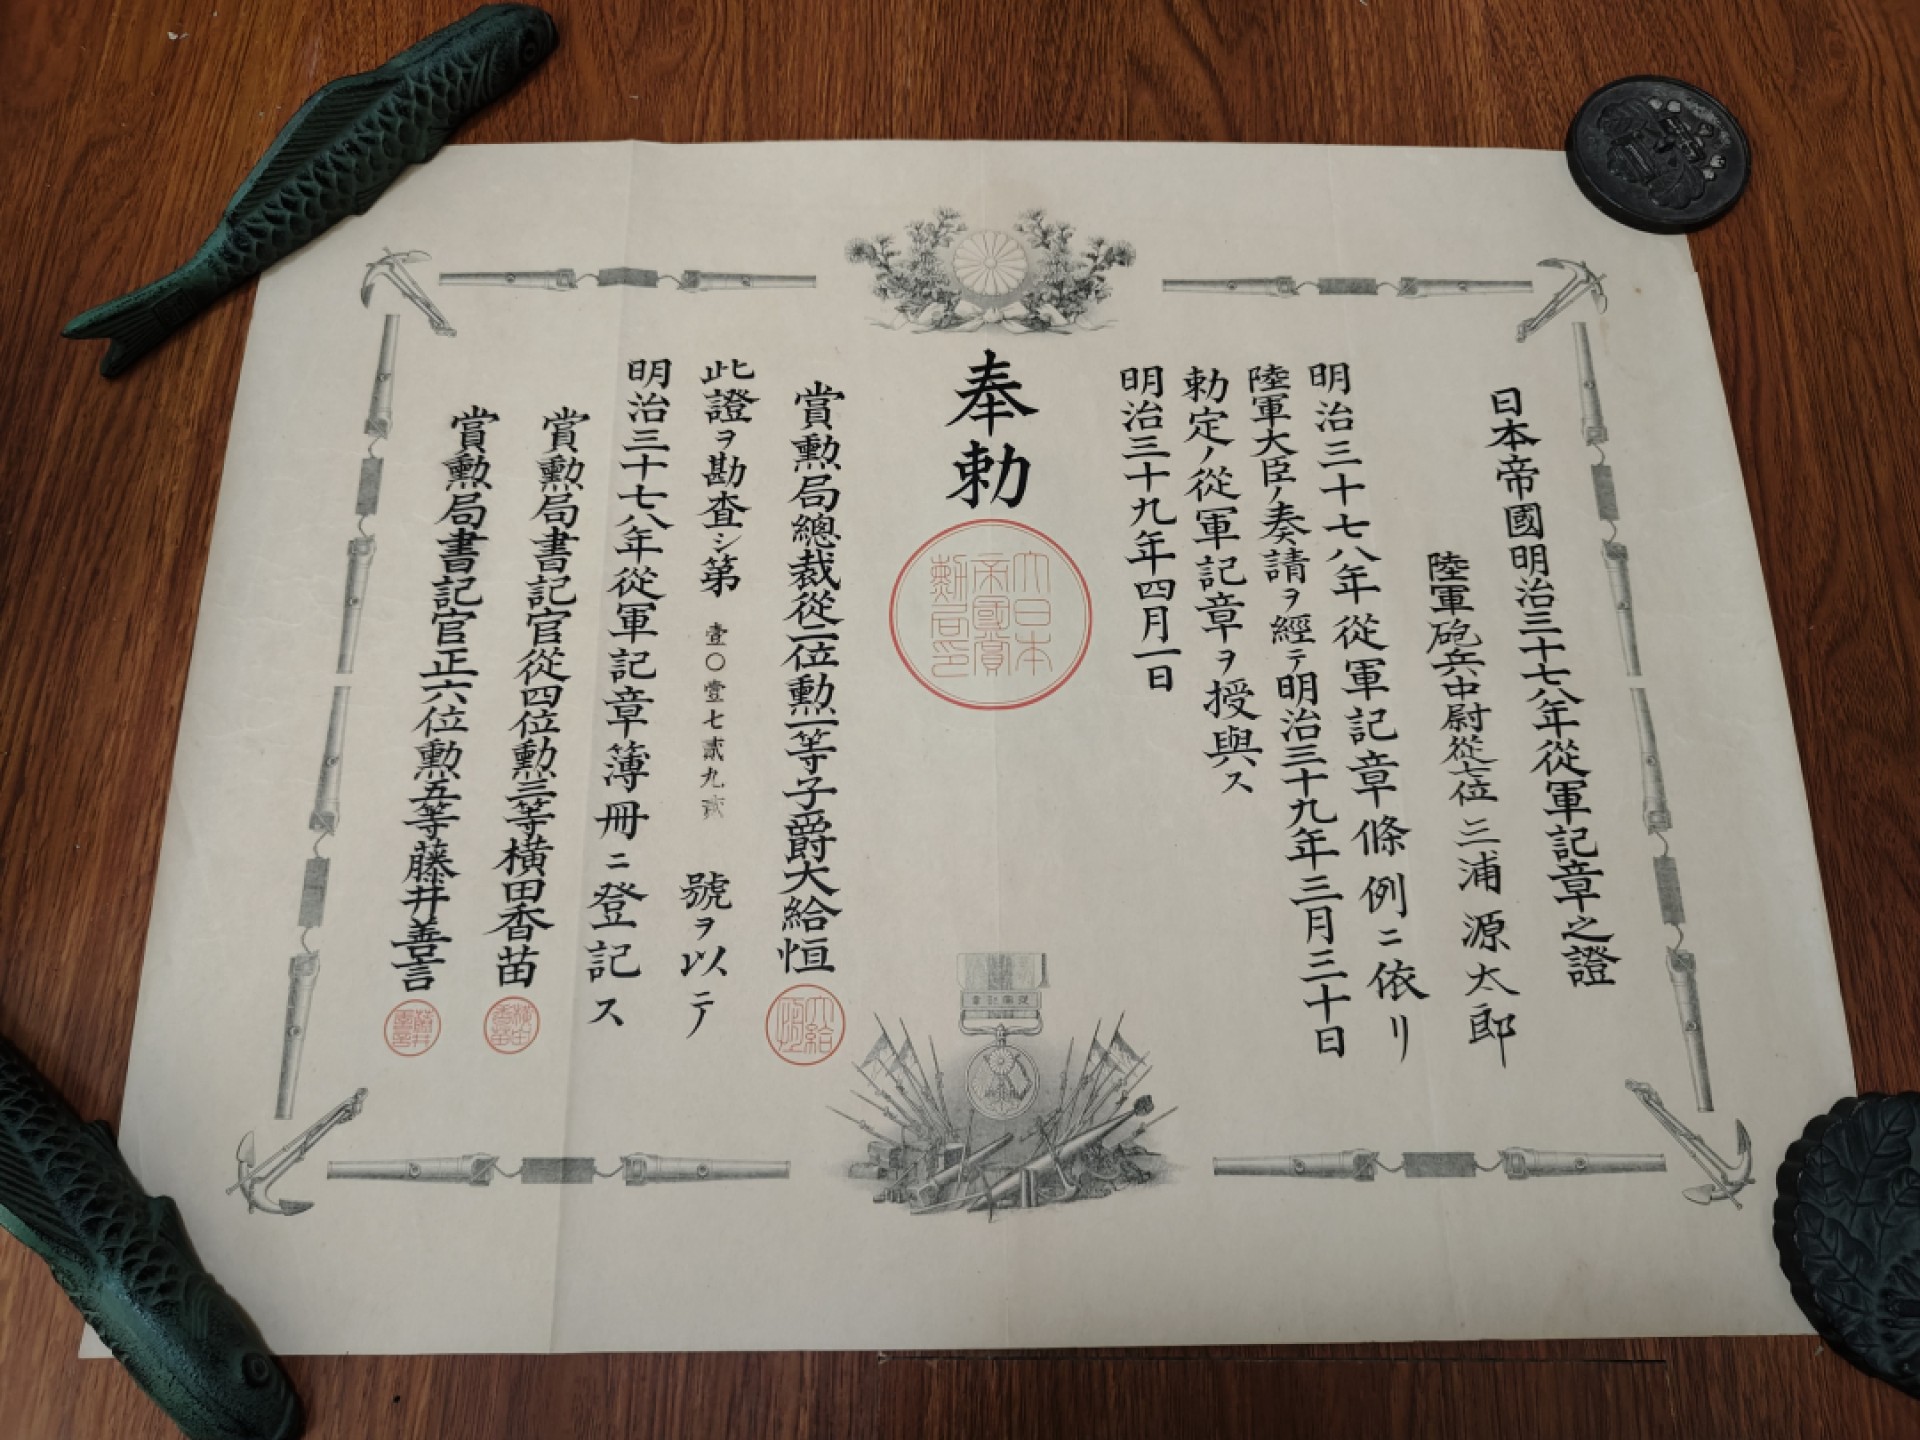 日本帝國明治三十七八年從軍記章之證
陸軍砲兵中尉從七位 三浦源太郎
明治三十七八年從軍記章條例ニ依リ
陸軍大臣ノ奏請ヲ經テ明治三十九年三月三十日
勅定ノ從軍記章ヲ授與ス
明治三十九年四月一日
奉勅
大日本
帝國賞
勲局印
從軍記章
賞勲局總裁從二位勲一等子爵大給恒
大給
恒
此證ヲ勘査シ第壹〇壹七貳九貳號ヲ以テ
明治三十七八年從軍記章簿冊ニ登記ス
賞勲局書記官從四位勲三等横田香苗
横田
香苗
賞勲局書記官正六位勲五等藤井善言
藤井
善言